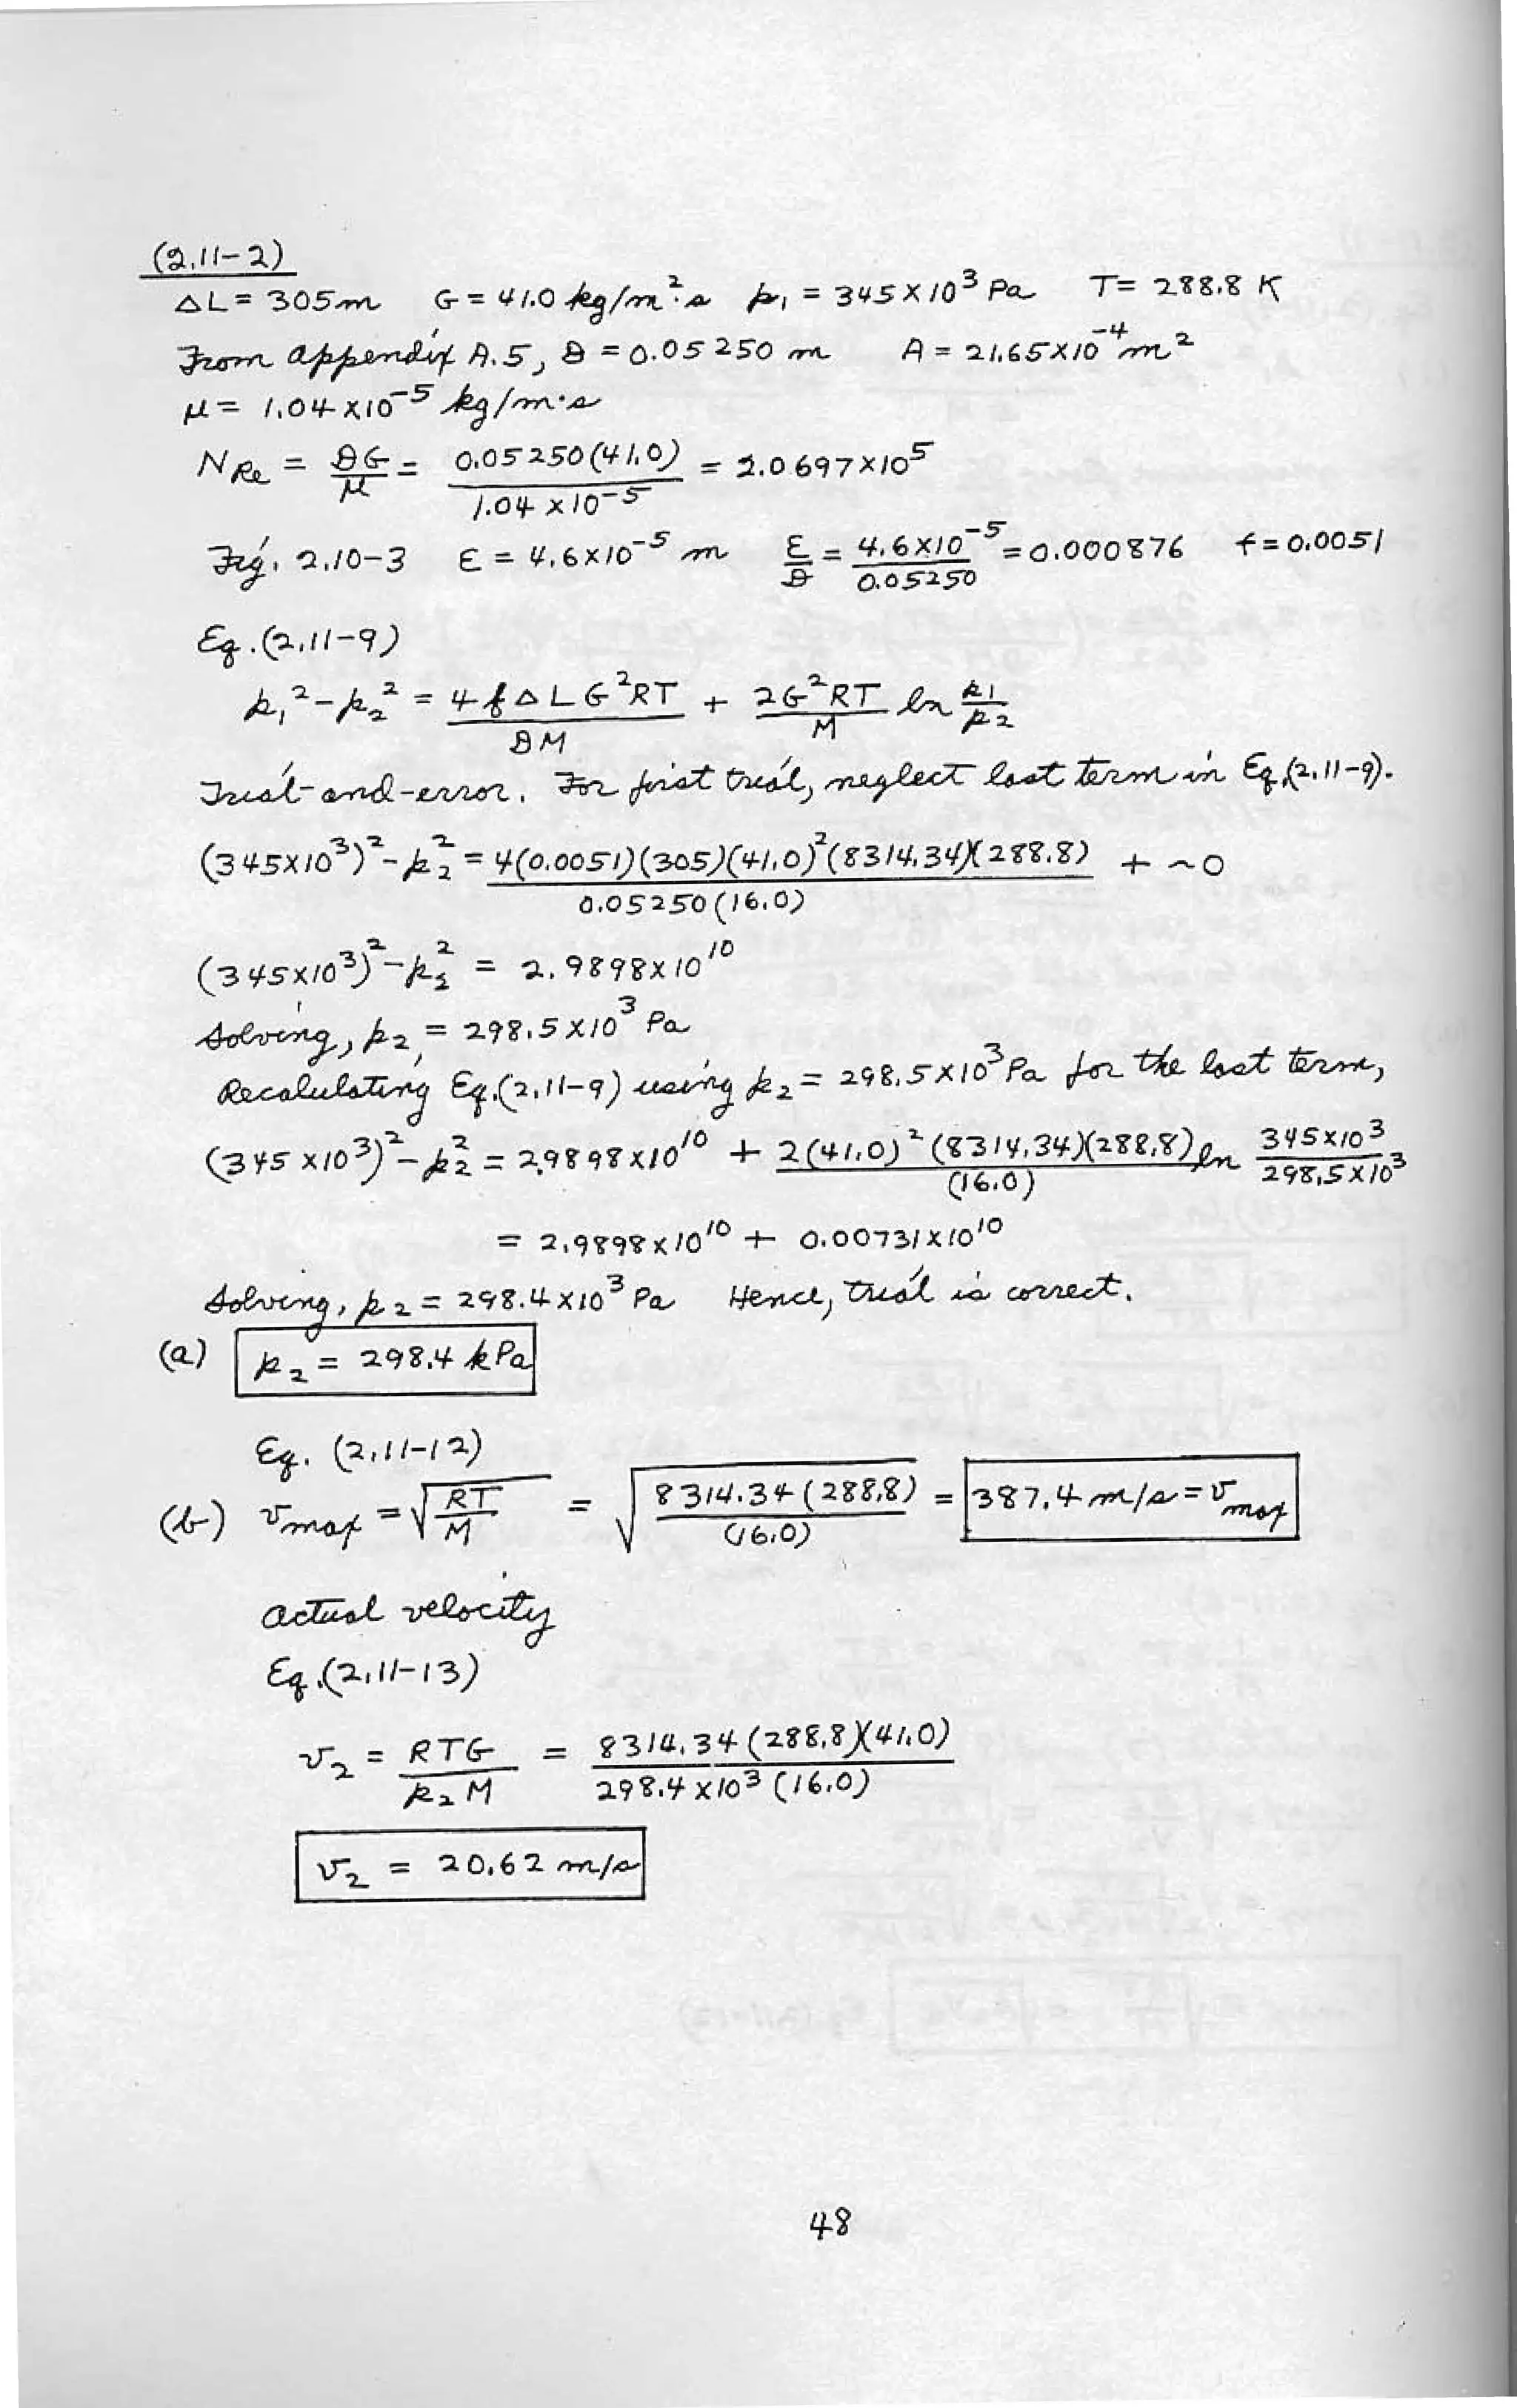 (2.11-2)
ΔL = 305 m G = 41.0 kg/m²·s p₁ = 345 x 10³ Pa T = 288.8 K
From Appendix A.5, D = 0.05250 m A = 21.65 x 10⁻⁴ m²
μ = 1.04 x 10⁻⁵ kg/m·s
N_Re = DG/μ = 0.05250(41.0)/1.04 x 10⁻⁵ = 2.0697 x 10⁵
Fig. 2.10-3 ε = 4.6 x 10⁻⁵ m ε/D = 4.6 x 10⁻⁵/0.05250 = 0.000876 f = 0.0051
Eq.(2.11-9)
p₁² - p₂² = 4fΔLG²RT/DM + 2G²RT/M ln p₁/p₂
Trial-and-error. For first trial, neglect last term in Eq.(2.11-9).
(345 x 10³)² - p₂² = 4(0.0051)(305)(41.0)²(8314.34)(288.8)/0.05250(16.0) + ~0
(345 x 10³)² - p₂² = 2.9898 x 10¹⁰
Solving, p₂ = 298.5 x 10³ Pa
Recalulating Eq.(2.11-9) using p₂ = 298.5 x 10³ Pa for the last term,
(345 x 10³)² - p₂² = 2.9898 x 10¹⁰ + 2(41.0)²(8314.34)(288.8)/(16.0) ln 345 x 10³/298.5 x 10³
= 2.9898 x 10¹⁰ + 0.00731 x 10¹⁰
Solving, p₂ = 298.4 x 10³ Pa Hence, trial is correct.
(a) p₂ = 298.4 kPa
Eq. (2.11-12)
(b) v_max = √(RT/M) = √(8314.34(288.8)/(16.0)) = 387.4 m/s = v_max
Actual velocity
Eq.(2.11-13)
v₂ = RTG/p₂M = 8314.34(288.8)(41.0)/298.4 x 10³(16.0)
v₂ = 20.62 m/s
48